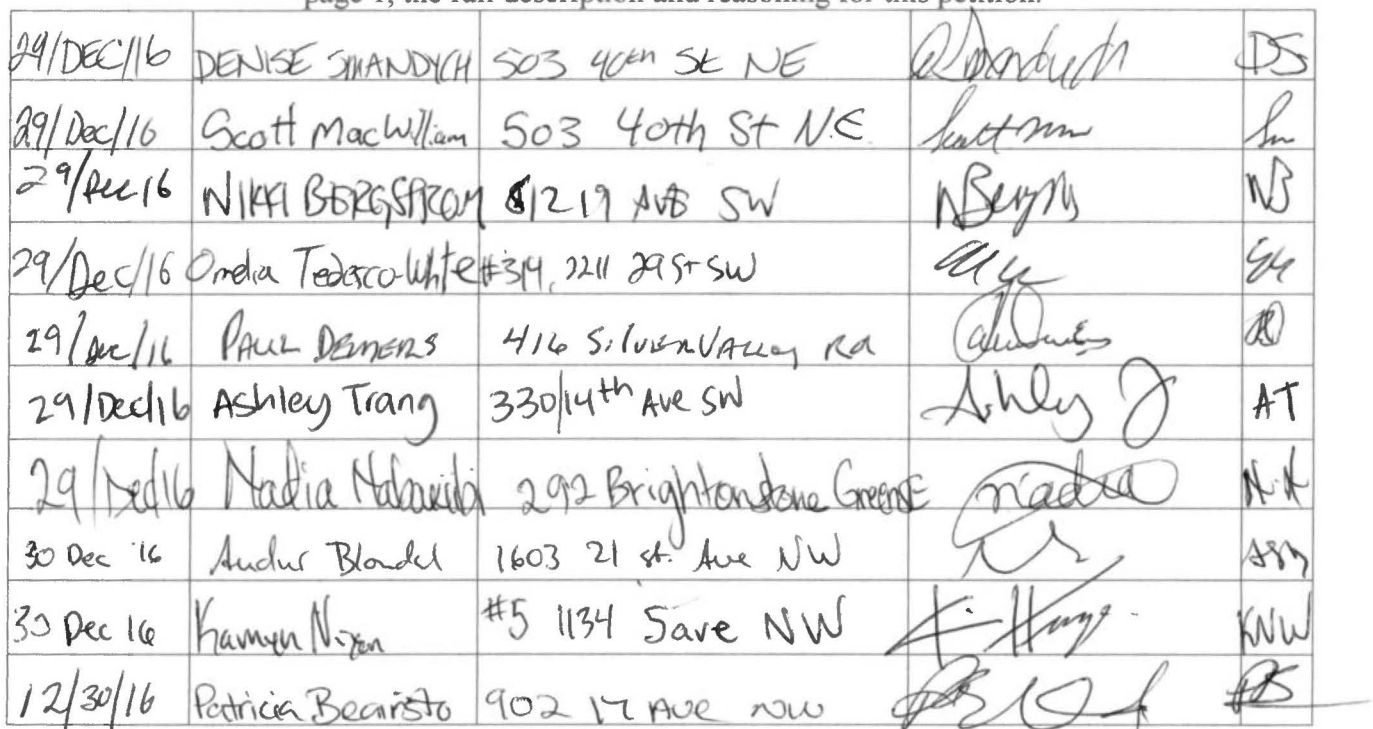 page 1, the full description and reasoning for this petition.
29/DEC/16 DENISE SMANDYCH 503 40th St NE DS
29/Dec/16 Scott MacWilliam 503 40th St N.E.
29/Dec 16 NIKKI BERGSTROM 1219 AVE SW NB
29/Dec/16 Omelia Tedesco-White #314, 2211 29 St SW
29/Dec/16 PAUL DEMERS 416 SilverVALLEY Rd
29/Dec/16 Ashley Trang 330/14th Ave SW Ashley AT
29/Dec/16 Nadia 292 Brightonstone Green SE nadia N.N
30 Dec 16 Blondal 1603 21 st. Ave NW
30 Dec 16 #5 1134 5ave NW KNW
12/30/16 Patricia Bearisto 902 17 AVE NW